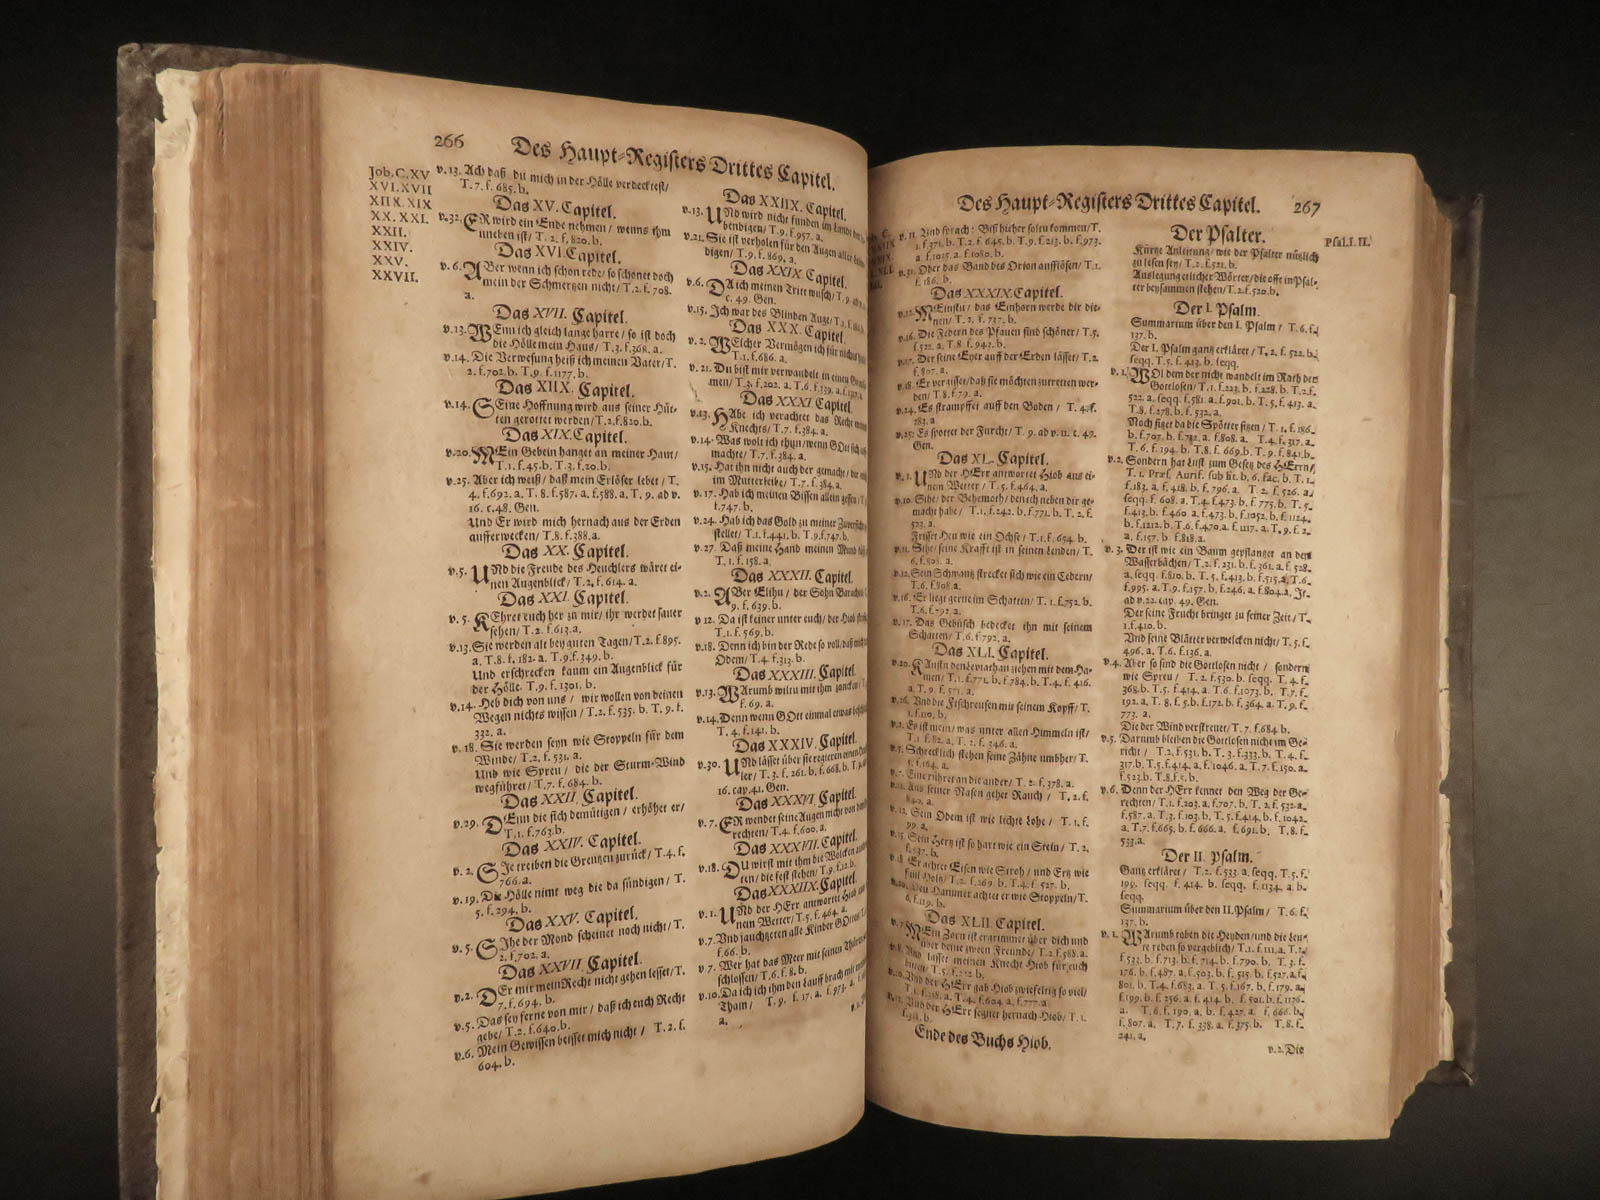 266 Des Haupt-Registers Drittes Capitel.
Job. C. XV
XVI. XVII
XIIX. XIX
XX. XXI.
XXII.
XXIV.
XXV.
XXVII.
v. 13. Ach daß du mich in der Hölle verdecktest/
T. 7. f. 685. b.
Das XV. Capitel.
v. 32. ER wird ein Ende nehmen / wenns ihm
uneben ist / T. 2. f. 820. b.
Das XVI. Capitel.
v. 6. ABer wenn ich schon rede / so schonet doch
mein der Schmertzen nicht / T. 2. f. 708.
a.
Das XVII. Capitel.
v. 13. WEnn ich gleich lange harre / so ist doch
die Hölle mein Haus / T. 3. f. 368. a.
v. 14. Die Verwesung heiß ich meinen Vater / T.
2. f. 702. b. T. 9. f. 1177. b.
Das XIIX. Capitel.
v. 14. SEine Hoffnung wird aus seiner Hüt-
ten gerottet werden / T. 2. f. 820. b.
Das XIX. Capitel.
v. 20. MEin Gebein hanget an meiner Haut /
T. 1. f. 45. b. T. 3. f. 20. b.
v. 25. Aber ich weiß / daß mein Erlöser lebet / T.
4. f. 692. a. T. 8. f. 587. a. f. 588. a. T. 9. ad v.
16. c. 48. Gen.
Und Er wird mich hernach aus der Erden
aufferwecken / T. 8. f. 388. a.
Das XX. Capitel.
v. 5. UNd die Freude des Heuchlers wäret ei-
nen Augenblick / T. 2. f. 614. a.
Das XXI. Capitel.
v. 5. KEhret euch her zu mir / ihr werdet sauer
sehen / T. 2. f. 613. a.
v. 13. Sie werden alt bey guten Tagen / T. 2. f. 895.
a. T. 8. f. 182. a. T. 9. f. 349. b.
Und erschrecken kaum ein Augenblick für
der Hölle. T. 9. f. 1301. b.
v. 14. Heb dich von uns / wir wollen von deinen
Wegen nichts wissen / T. 2. f. 535. b. T. 9. f.
332. a.
v. 18. Sie werden seyn wie Stoppeln für dem
Winde / T. 2. f. 531. a.
Und wie Spreu / die der Sturm-Wind
wegführet / T. 7. f. 684. b.
Das XXII. Capitel.
v. 29. DEnn die sich demütigen / erhöhet er /
T. 1. f. 763. b.
Das XXIV. Capitel.
v. 2. SIe treiben die Grentzen zurück / T. 4. f.
766. a.
v. 19. Die Hölle nimt weg die da sündigen / T.
5. f. 294. b.
Das XXV. Capitel.
v. 5. SIhe der Mond scheinet noch nicht / T.
2. f. 702. a.
Das XXVII. Capitel.
v. 2. DEr mir mein Recht nicht gehen lesset / T.
7. f. 694. b.
v. 5. Das sey ferne von mir / daß ich euch Recht
gebe / T. 2. f. 640. b.
v. 6. Mein Gewissen beisset mich nicht / T. 2. f.
604. b.
Das XXIIX. Capitel.
v. 13. UNd wird nicht funden im Lande der
bendigen / T. 9. f. 957. a.
v. 21. Sie ist verholen für den Augen aller
digen / T. 9. f. 869. a.
Das XXIX. Capitel.
v. 6. DA ich meinen Tritt wusch / T. 9.
c. 49. Gen.
v. 15. Ich war des Blinden Auge / T.
Das XXX. Capitel.
v. 2. WElcher Vermögen ich für nichts
T. 1. f. 686. a.
v. 21. Du bist mir verwandelt in einen
men / T. 3. f. 202. a. T. 6. f. 139. a.
Das XXXI. Capitel.
v. 13. HAbe ich verachtet das Recht meines
Knechts / T. 7. f. 384. a.
v. 14. Was wolt ich thun / wenn GOtt sich
machte / T. 7. f. 384. a.
v. 15. Hat ihn nicht auch der gemacht / der
im Mutterleibe / T. 7. f. 384. a.
v. 17. Hab ich meinen Bissen allein gessen /
f. 747. b.
v. 24. Hab ich das Gold zu meiner Zuversicht
stellet / T. 1. f. 441. b. T. 9. f. 747. b.
v. 27. Daß meine Hand meinen Mund
T. 1. f. 158. a.
Das XXXII. Capitel.
v. 2. ABer Elihu / der Sohn Baracheel
9. f. 639. b.
v 12. Da ist keiner unter euch / der Hiob
T. 1. f. 569. b.
v. 18. Denn ich bin der Rede so voll / daß
Odem / T. 4. f. 313. b.
Das XXXIII. Capitel.
v. 13. WArumb wiltu mit ihm zancken /
f. 69. a.
v. 14. Denn wenn GOtt einmal etwas
T. 4. f. 141. b.
Das XXXIV. Capitel.
v. 30. UNd lässet über sie regieren einen
ler / T. 3. f. 261. b. f. 668. b.
16. cap. 41. Gen.
Das XXXVI. Capitel.
v. 7. ER wendet seine Augen nicht von dem
rechten / T. 4. f. 600. a.
Das XXXVII. Capitel.
v. 18. DU wirst mit ihm die Wolcken
ten / die fest stehen / T. 9. f. 12. b.
Das XXXIIX. Capitel.
v. 1. UNd der HErr antwortet Hiob
nem Wetter / T. 5. f. 464. a.
v. 7. Und jauchzeten alle Kinder GOttes
f. 66. b.
v. 7. Wer hat das Meer mit seinen Thüren
schlossen / T. 6. f. 8. b.
v. 10. Da ich ihm den Lauff brach mit meinem
Tham / T. 9. f. 17. a. f. 973. a.
a.
Des Haupt-Registers Drittes Capitel. 267
v. 11. Und sprach: Biß hieher solcu kommen / T.
1. f. 371. b. T. 2. f. 645. b. T. 9. f. 213. b. f. 973.
a. f. 1025. a. f. 1080. b.
v. 31. Oder das Band des Orion aufflösen / T. 1.
f. 186. b.
Das XXXIX. Capitel.
v. 12. MEinstu / das Einhorn werde dir die-
nen / T. 2. f. 717. b.
v. 16. Die Federn des Pfauen sind schöner / T. 5.
f. 522. a. T. 8. f. 943. b.
v. 17. Der seine Eyer auff der Erden lässet / T. 2.
f. 807. a.
v. 18. Er vergisset / daß sie möchten zutretten wer-
den / T. 8. f. 79. a.
v. 24. Es strampffet auff den Boden / T. 4. f.
283. a
v. 25. Es spottet der Furcht / T. 9. ad v. 11. c. 49.
Gen.
Das XL. Capitel.
v. 1. UNd der HErr antwortet Hiob aus ei-
nem Wetter / T. 5. f. 464. a.
v. 10. Sihe / der Behemoth / den ich neben dir ge-
macht habe / T. 1. f. 242. b. f. 771. b. T. 2. f.
523. a.
Frisset Heu wie ein Ochse / T. 1. f. 654. b.
v. 11. Sihe / seine Krafft ist in seinen Lenden / T.
6. f. 808. a.
v. 12. Sein Schwantz strecket sich wie ein Cedern /
T. 6. f. 808. a.
v. 16. Er liegt gerne im Schatten / T. 1. f. 752. b.
T. 6. f. 792. a.
v. 17. Das Gebüsch bedecket ihn mit seinem
Schatten / T. 6. f. 792. a.
Das XLI. Capitel.
v. 20. KAnstu den Leviathan ziehen mit dem Ha-
men / T. 1. f. 771. b. f. 784. b. T. 4. f. 416.
a. T. 9. f. 571. a.
v. 26. Und die Fischreusen mit seinem Kopff / T.
1. f. 110. b.
v. 2. Es ist mein / was unter allen Himmeln ist /
T. 1. f. 82. a. T. 2. f. 346. a.
v. 5. Schrecklich stehen seine Zähne umbher / T.
5. f. 164. a.
v. 7. Eine rühret an die ander / T. 2. f. 378. a.
v. 11. Aus seiner Nasen gehet Rauch / T. 2. f.
840. a.
v. 12. Sein Odem ist wie lichte Lohe / T. 1. f.
99. a.
v. 15. Sein Hertz ist so hart wie ein Stein / T. 2.
f. 537. b.
v. 18. Er achtet Eisen wie Stroh / und Ertz wie
faul Holtz / T. 2. f. 269. b. T. 4. f. 527. b.
v. 20. Den Hammer achtet er wie Stoppeln / T.
6. f. 119. b.
Das XLII. Capitel.
v. 7. MEin Zorn ist ergrimmet über dich und
über deine zween Freunde / T. 2. f. 588. a.
v. 8. Und lasset meinen Knecht Hiob für euch
bitten / T. 5. f. 222 b.
v. 10. Und der HErr gab Hiob zwiefeltig so viel /
T. 1. f. 318. a. T. 4. f. 604. a. f. 777. a.
v. 12. Und der HErr segnet hernach Hiob / T. 1.
f. 318. b.
Ende des Buchs Hiob.
Psal. I. II.
Der Psalter.
Kurtze Anleitung / wie der Psalter nützlich
zu lesen sey / T. 2. f. 521. b.
Auslegung etlicher Wörter / die offt im Psal-
ter beysammen stehen / T. 2. f. 520. b.
Der I. Psalm.
Summarium über den I. Psalm / T. 6. f.
137. b.
Der I. Psalm gantz erkläret / T. 2. f. 522. b.
seqq. T. 5. f. 413. b. seqq.
v. 1. WOl dem der nicht wandelt im Rath der
Gottlosen / T. 1. f. 223. b. f. 228. b. T. 2. f.
522. a. seqq. f. 581. a. f. 901. b. T. 5. f. 413. a.
T. 8. f. 278. b. f. 532. a.
Noch sitzet da die Spötter sitzen / T. 1. f. 186.
b. f. 707. b. f. 782. a. f. 808. a. T. 4. f. 317. a.
T. 6. f. 194. b. T. 8. f. 669. b. T. 9. f. 841. b.
v. 2. Sondern hat Lust zum Gesetz des HErrn /
T. 1. Præf. Aurif. sub lit. b. 6. fac. b. T. 1.
f. 183. a. f. 418. b. f. 796. a. T. 2. f. 526. a.
seqq. f. 608. a. T. 4. f. 473. b. f. 775. b. T. 5.
f. 413. b. f. 460. a. f. 473. b. f. 1052. b. f. 1124.
b. f. 1212. b. T. 6. f. 470. a. f. 1117. a. T. 9. f. 2.
a. f. 157. b. f. 818. a.
v. 3. Der ist wie ein Baum gepflantzet an den
Wasserbächen / T. 2. f. 231. b. f. 361. a. f. 528.
a. seqq. f. 810. b. T. 5. f. 413. b. f. 515. a. T. 6.
f. 995. a. T. 9. f. 157. b. f. 246. a. f. 804. a. It.
ad v. 22. cap. 49. Gen.
Der seine Frucht bringet zu seiner Zeit / T.
1. f. 410. b.
Und seine Blätter verwelcken nicht / T. 5. f.
496. a. T. 6. f. 136. a.
v. 4. Aber so sind die Gottlosen nicht / sondern
wie Spreu / T. 2. f. 530. b. seqq. T. 4. f.
368. b. T. 5. f. 414. a. T. 6. f. 1073. b. T. 7. f.
192. a. T. 8. f. 5. b. f. 172. b. f. 364. a. T. 9. f.
773. a.
Die der Wind verstreuet / T. 7. f. 684 b.
v. 5. Darumb bleiben die Gottlosen nicht im Ge-
richt / T. 2. f. 531. b. T. 3. f. 333. b. T. 4. f.
317. b. T. 5. f. 414. a. f. 1046. a. T. 7. f. 150. a.
f. 523. b. T. 8. f. 5. b.
v. 6. Denn der HErr kennet den Weg der Ge-
rechten / T. 1. f. 203. a. f. 707. b. T. 2. f. 532. a.
f. 587. a. T. 3. f. 103. b. T. 5. f. 414. b. f. 1042.
a. T. 7. f. 665. b. f. 666. a. f. 691. b. T. 8. f.
533. a.
Der II. Psalm.
Gantz erkläret / T. 2. f. 533. a. seqq. T. 5. f.
199. seqq. f. 414. b. seqq. f. 1134. a. b.
seqq.
Summarium über den II. Psalm / T. 6. f.
137. b.
v. 1. WArumb toben die Heyden / und die Leu-
te reden so vergeblich / T. 1. f. 111. a. T. 2.
f. 533. b. f. 713. b. f. 714. b. f. 790. b. T. 3. f.
176. b. f. 487. a. f. 503. b. f. 515. b. f. 527. a. f.
801. b. T. 4. f. 683. a. T. 5. f. 167. b. f. 179. a.
f. 199. b. f. 256. a. f. 414. b. f. 501. b. f. 1176.
a. T. 6. f. 190. a. b. f. 427. a. f. 666. b.
f. 807. a. T. 7. f. 338. a. f. 375. b. T. 8. f.
241. a.
v. 2. Die